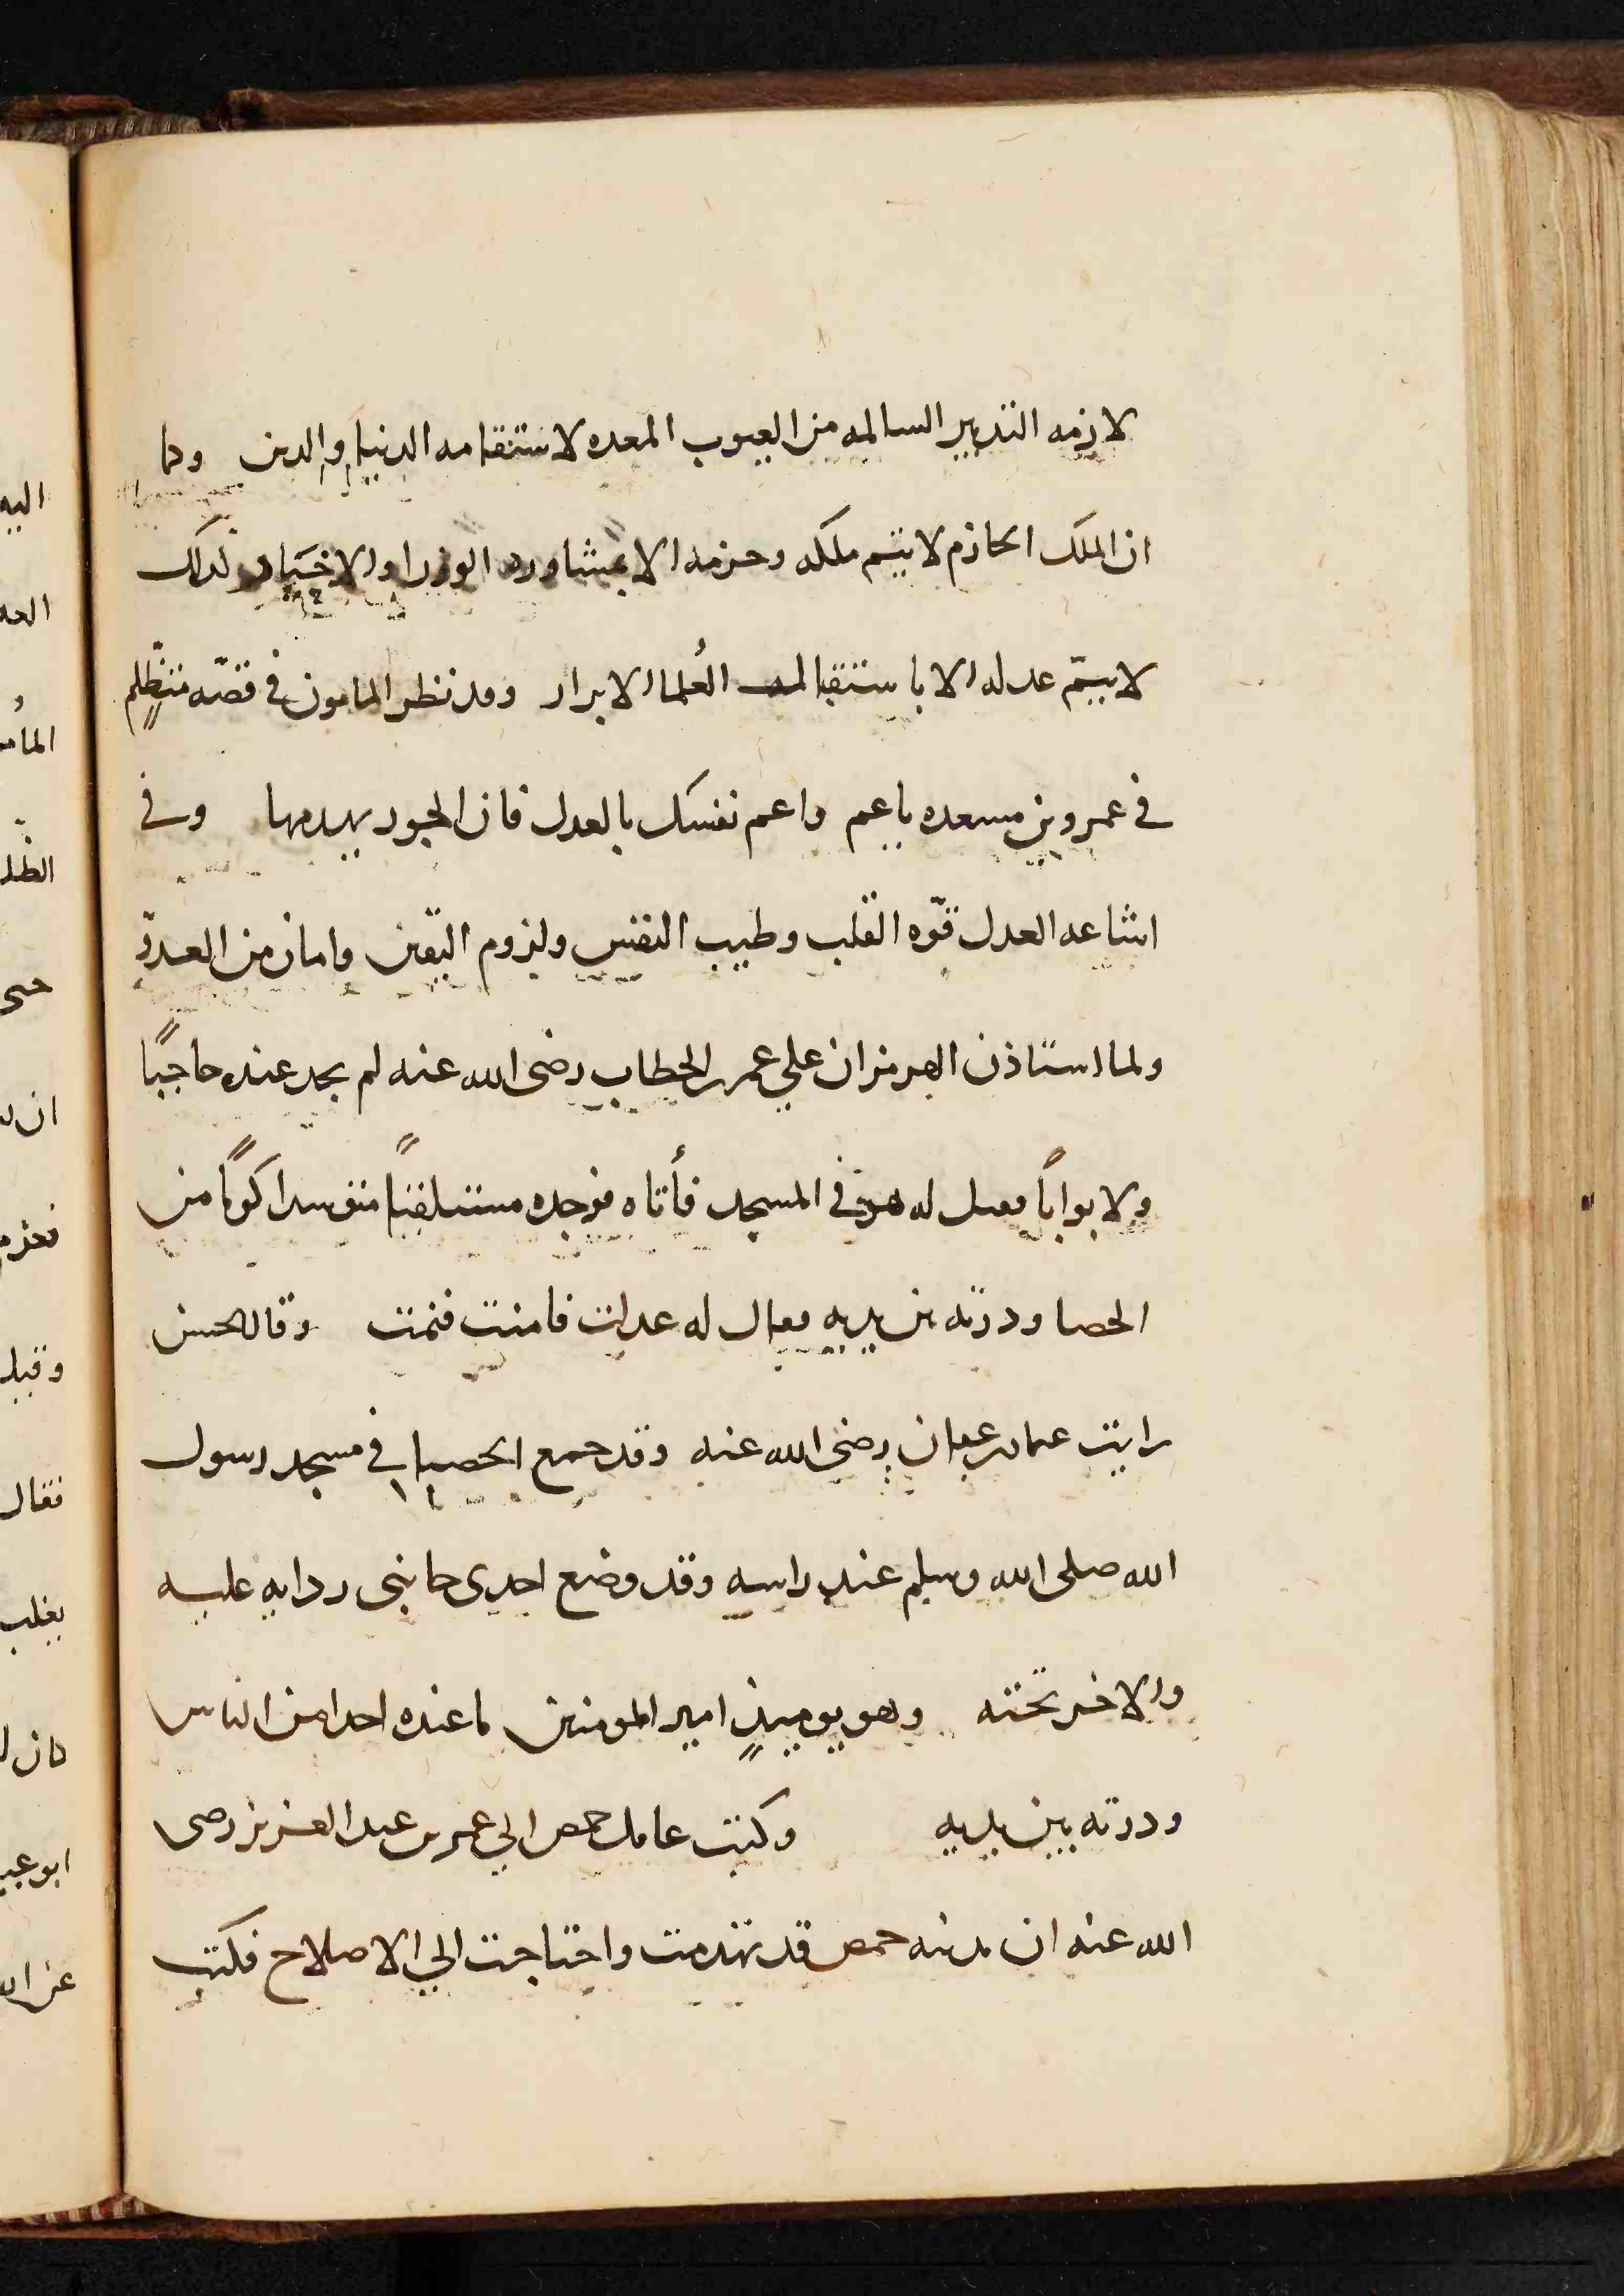 لازمه التدبير السالمه من العيوب المعده لاستقامه الدنيا والدين وكما
ان الملك الحازم لا يتم ملكه وحزمه الا بمشاوره الوزرا والاخيار كذلك
لا يتم عدله الا باستقبا العُلما الابرار وقد نظر المامون في قصّه متظّلمٍ
في عمرو بن مسعده ياعم واعم نفسك بالعدل فان الجور يهدمها وفي
اشاعه العدل قوّه القلب وطيب النفس ولزوم اليقين وامان من العدوّ
ولما استاذن الهرمزان علي عمر بن الخطاب رضي الله عنه لم يجد عنده حاجبًا
ولا بوابًا فقيل له هو في المسجد فأتاه فوجده مستلقيًا متوسدا كومًا من
الحصا ودرته بين يديه فقال له عدلت فامنت فنمت وقال الحسن
رايت عثمان بن عفان رضي الله عنه وقد جمع الحصبا في مسجد رسول
الله صلى الله وسلم عند راسه وقد وضع احدى جانبى ردايه عليه
والاخر تحته وهو يوميذٍ امير المومنين ما عنده احدا من الناس
ودرته بين يديه وكتب عامل حمص الي عمر بن عبد العزيز رضى
الله عنه ان مدينه حمص قد تهدمت واحتاجت الي الاصلاح فكتب